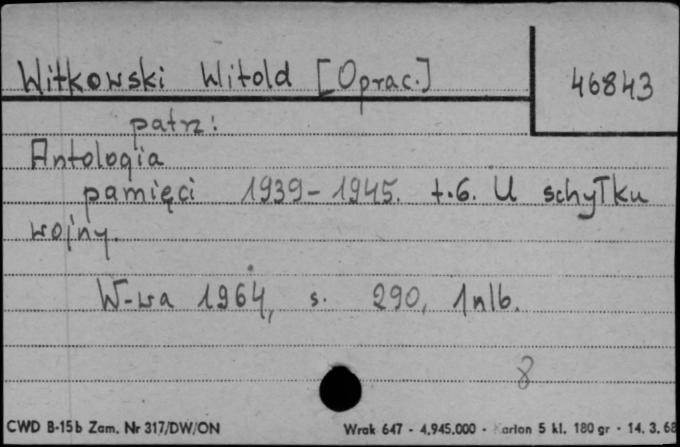 Witkowski Witold [Oprac.] 46843
patrz:
Antologia
pamięci 1939-1945. t.6. U schyłku
wojny.
W-wa 1964, s. 290, 1 nlb.
8
CWD B-15b Zam. Nr 317/DW/ON Wrak 647 - 4.945.000 - Karton 5 kl. 180 gr - 14. 3. 68